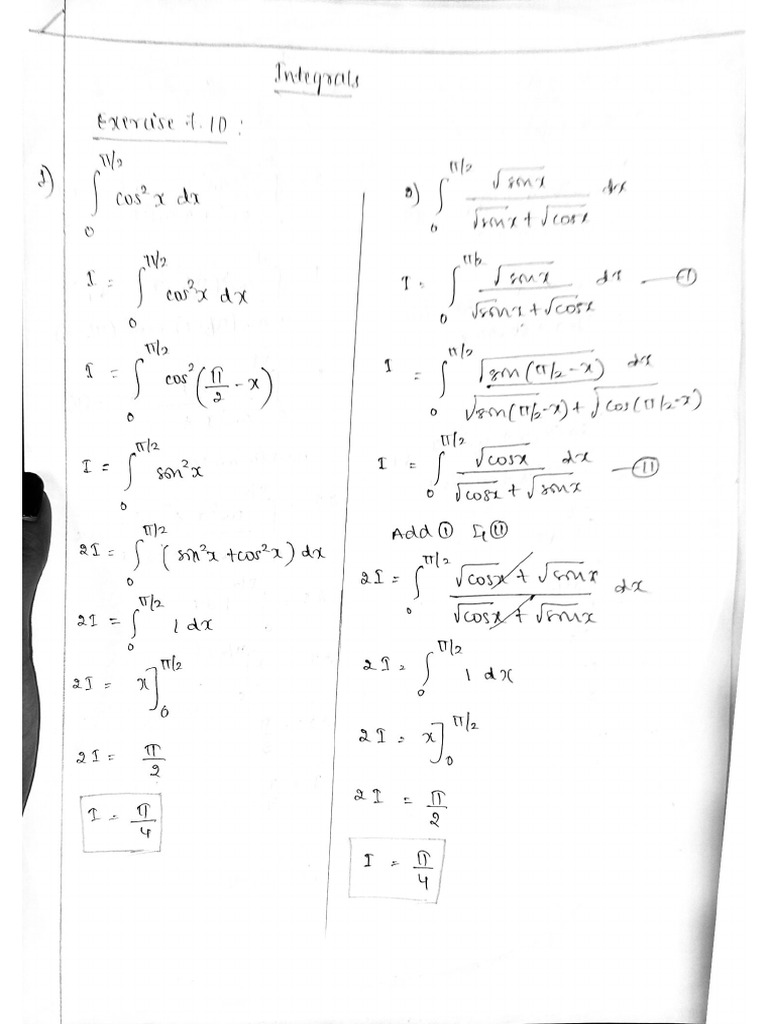 Integrals
Exercise 7.10:
1) ∫₀^(π/2) cos²x dx
I = ∫₀^(π/2) cos²x dx
I = ∫₀^(π/2) cos²(π/2 - x)
I = ∫₀^(π/2) sin²x
2I = ∫₀^(π/2) (sin²x + cos²x) dx
2I = ∫₀^(π/2) 1 dx
2I = x]₀^(π/2)
2I = π/2
I = π/4
2) ∫₀^(π/2) √sinx / (√sinx + √cosx) dx
I = ∫₀^(π/2) √sinx / (√sinx + √cosx) dx —Ⓘ
I = ∫₀^(π/2) √sin(π/2-x) / (√sin(π/2-x) + √cos(π/2-x)) dx
I = ∫₀^(π/2) √cosx / (√cosx + √sinx) dx —Ⓘⓘ
Add Ⓘ & Ⓘⓘ
2I = ∫₀^(π/2) (√cosx + √sinx) / (√cosx + √sinx) dx
2I = ∫₀^(π/2) 1 dx
2I = x]₀^(π/2)
2I = π/2
I = π/4